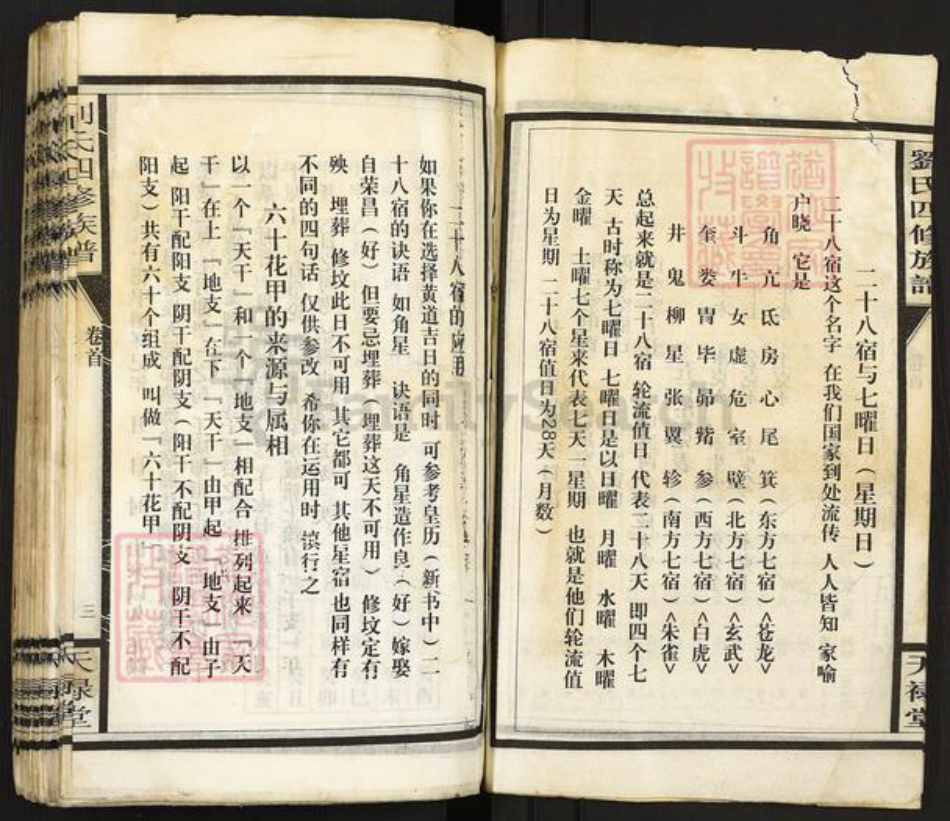 劉氏四修族譜
天禄堂
二十八宿与七曜日（星期日）
二十八宿这个名字 在我们国家到处流传 人人皆知 家喻
户晓 它是
角 亢 氐 房 心 尾 箕（东方七宿）<苍龙>
斗 牛 女 虚 危 室 壁（北方七宿）<玄武>
奎 娄 胃 毕 昴 觜 参（西方七宿）<白虎>
井 鬼 柳 星 张 翼 轸（南方七宿）<朱雀>
总起来就是二十八宿 轮流值日 代表二十八天 即四个七
天 古时称为七曜日 七曜日是以日曜 月曜 水曜 木曜
金曜 土曜七个星来代表七天一星期 也就是他们轮流值
日为星期 二十八宿值日为28天（月数）
二十八宿的应用
如果你在选择黄道吉日的同时 可参考皇历（新书中）二
十八宿的诀语 如角星 诀语是 角星造作良（好）嫁娶
自荣昌（好）但要忌埋葬（埋葬这天不可用） 修坟定有
殃 埋葬 修坟此日不可用 其它都可 其他星宿也同样有
不同的四句话 仅供参改 希你在运用时 慎行之
六十花甲的来源与属相
以一个「天干」和一个「地支」相配合 排列起来 「天
干」在上 「地支」在下 「天干」由甲起 「地支」由子
起 阳干配阳支 阴干配阴支（阳干不配阴支 阴干不配
阳支）共有六十个组成 叫做「六十花甲」
刘氏四修族普
卷首
三
天禄堂
FamilySearch